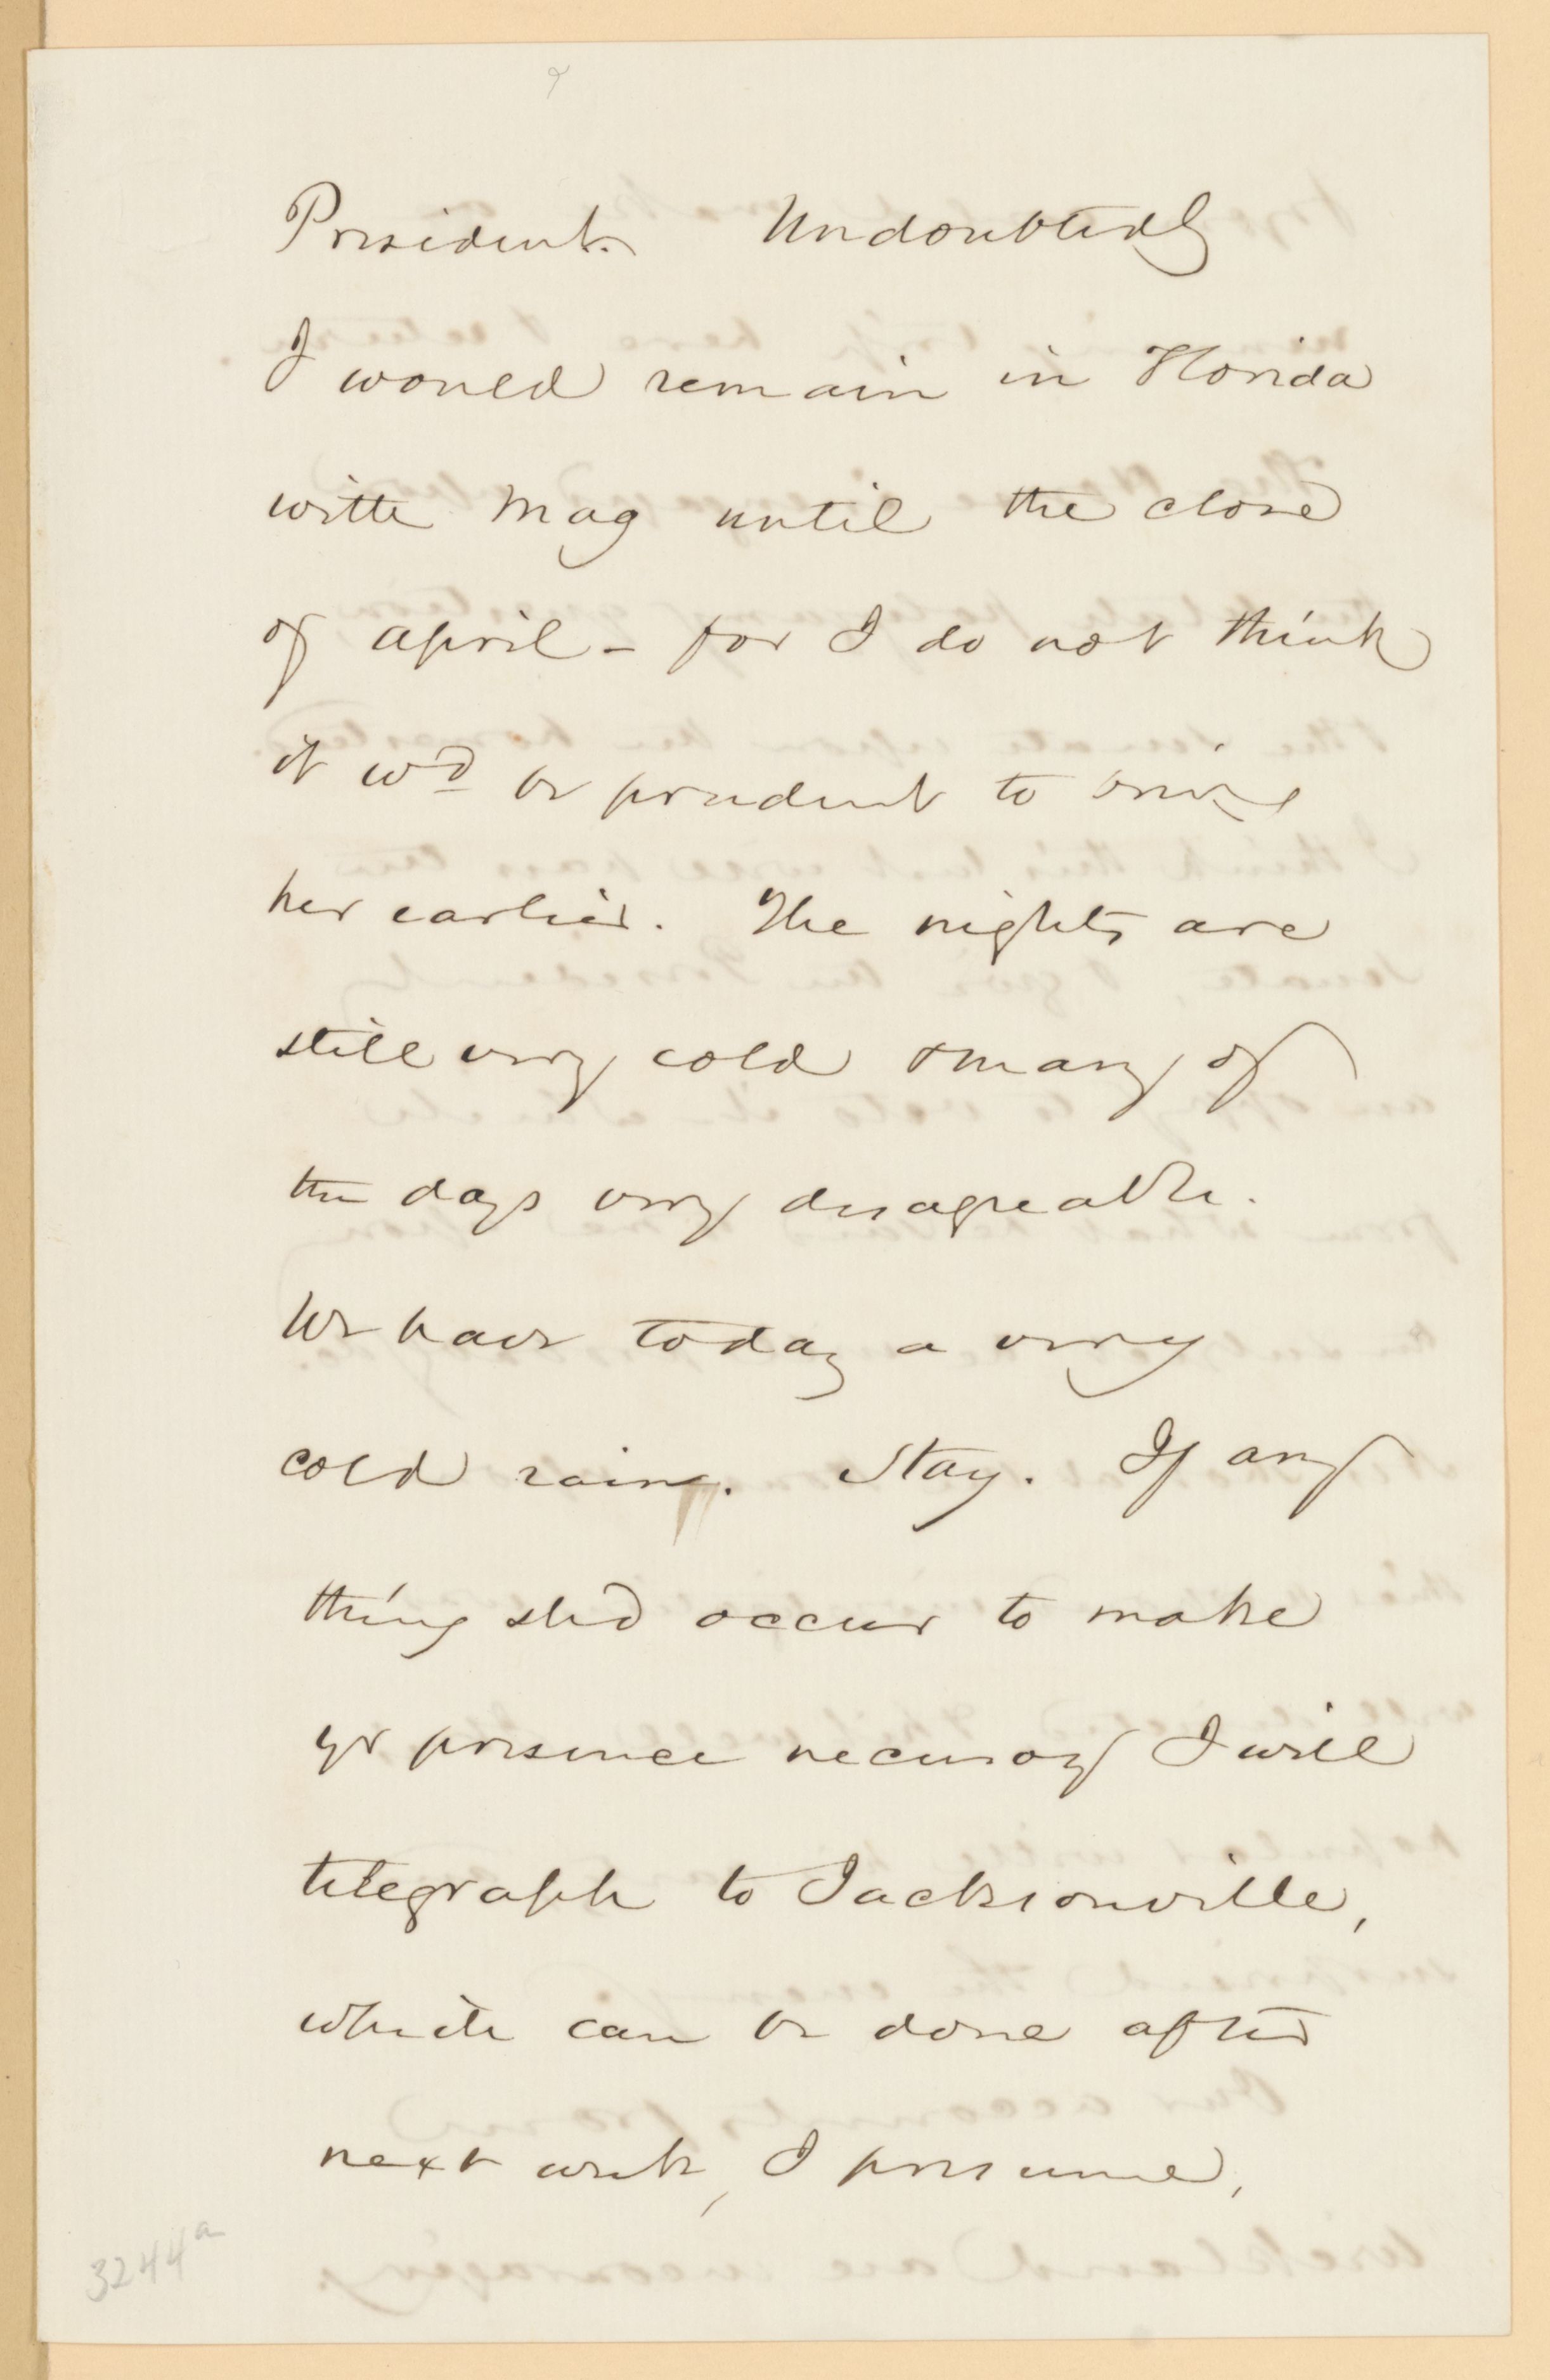 President. Undoubtedly
I would remain in Florida
with Mag until the close
of april - for I do not think
it wd be prudent to bring
her earlier. The nights are
still very cold & many of
the days very disagreeable.
We have today a very
cold rain. Stay. If any
thing shd occur to make
yr presence necessary I will
telegraph to Jacksonville,
which can be done after
next week, I presume,
3244a